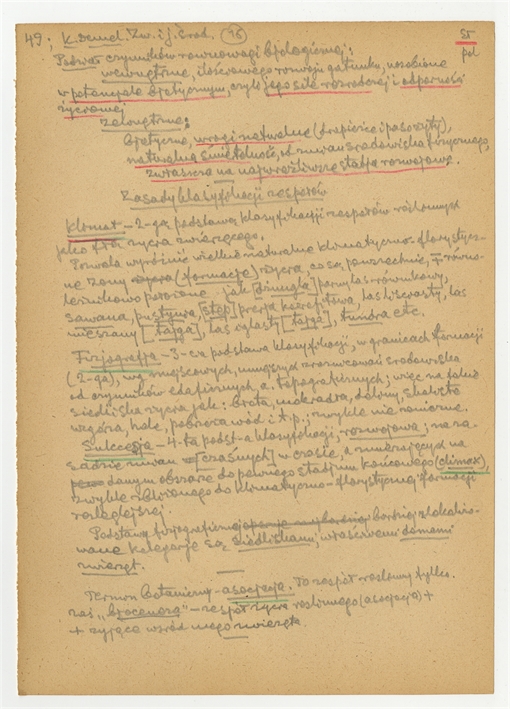 49; K. Demel. Zw. i j. środ. (18)
Podział czynników równowagi biologicznej:
wewnętrzne, ilościowego rozwoju gatunku, uosobione
w potencjale biotycznym, czyli jego sile rozrodczej i odporności
życiowej
zewnętrzne:
biotyczne, wrogi naturalne (drapieżce i pasożyty),
naturalna śmiertelność, od zmian środowiska fizycznego,
zwłaszcza na najwrażliwsze stadja rozwojowe.
Zasady klasyfikacji zespołów
Klimat – 2-ga podstawa klasyfikacji zespołów roślinnych
jako tła życia zwierzęcego.
Pozwala wyróżnić wielkie naturalne klimatyczno-florystycz-
ne zony (formacje) życia, co są powszechnie, równo-
leżnikowo położone: jak [dżungla] parny las równikowy,
sawana, pustynia, [step] prerja, las liściasty, las
mieszany [tajga], las iglasty [tajga], tundra etc.
Fizjografja – 3-cia podstawa klasyfikacji, w granicach formacji
(2-ga), wg miejscowych, mniejszych zróżnicowań środowiska
od czynników edaficznych, a. topograficznych; więc na takie
siedliska życia jak: błota, mokradła, doliny, skaliste
wzgórza, hale, pobrzeża wód i t. p.; zwykle nie rozmożne.
Sukcesja – 4-ta podst-a klasyfikacji, rozwojowa; na za-
sadzie zmian [czasnych] w czasie, a zmierzających na
danym obszarze do pełnego stadjum końcowego (climax),
zwykle zbliżonego do klimatyczno-florystycznej formacji
rozleglejszej.
Podstawą fizjograficzną bardziej zlokalizo-
wane kategorje są siedliskami, właściwemi domami
zwierząt.
Termin botaniczny – asocjacja. To zespół roślinny tylko.
zaś „biocenoza" – zespół życia roślinnego (asocjacja) +
+ żyjące wśród niego zwierzęta.
St
pol